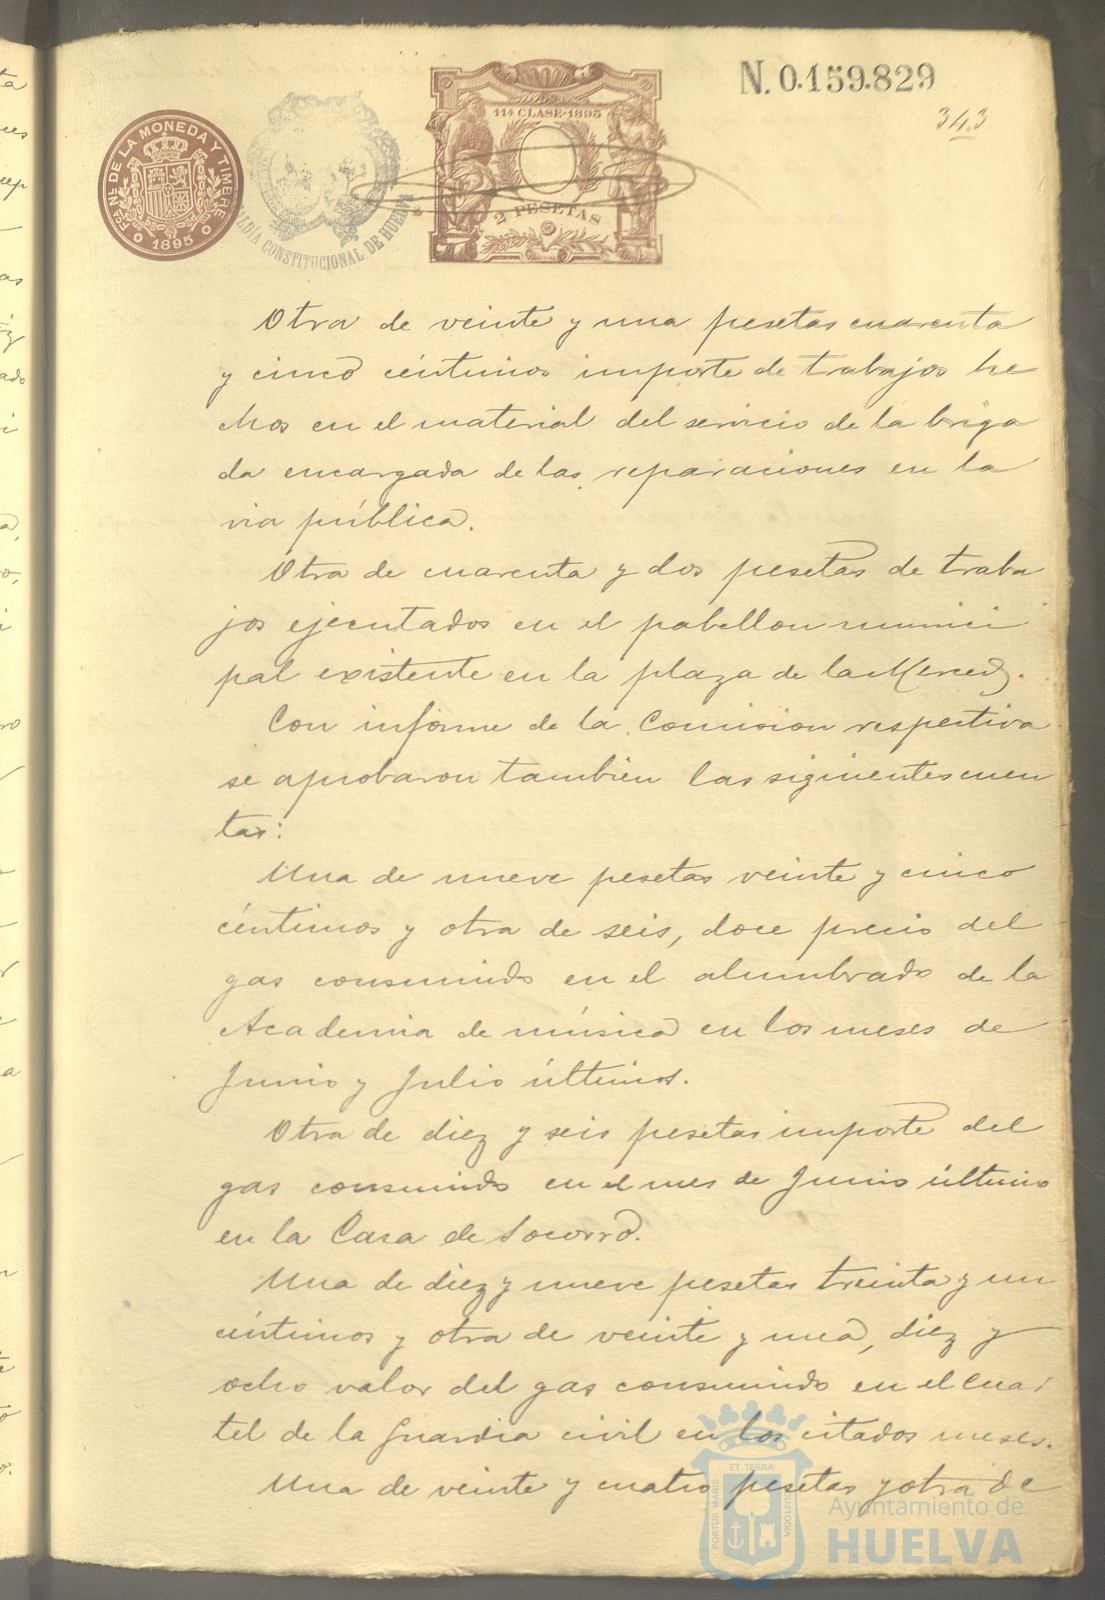 N. 0.159.829
343
11ª CLASE·1895
2 PESETAS
FCA NL DE LA MONEDA Y TIMBRE
1895
ALCALDÍA CONSTITUCIONAL DE HUELVA
Otra de veinte y una pesetas cuarenta
y cinco céntimos importe de trabajos he
chos en el material del servicio de la briga
da encargada de las reparaciones en la
via pública.
Otra de cuarenta y dos pesetas de traba
jos ejecutados en el pabellon munici
pal existente en la plaza de la Merced.
Con informe de la Comision respectiva
se aprobaron tambien las siguientes cuen
tas:
Una de nueve pesetas veinte y cinco
céntimos y otra de seis, doce precio del
gas consumido en el alumbrado de la
Academia de música en los meses de
Junio y Julio últimos.
Otra de diez y seis pesetas importe del
gas consumido en el mes de Junio último
en la Casa de Socorro.
Una de diez y nueve pesetas treinta y un
céntimos y otra de veinte y una, diez y
ocho valor del gas consumido en el cuar
tel de la Guardia civil en los citados meses.
Una de veinte y cuatro pesetas y otra de
PORTUS MARIS ET TERRÆ CUSTODIA
Ayuntamiento de
HUELVA